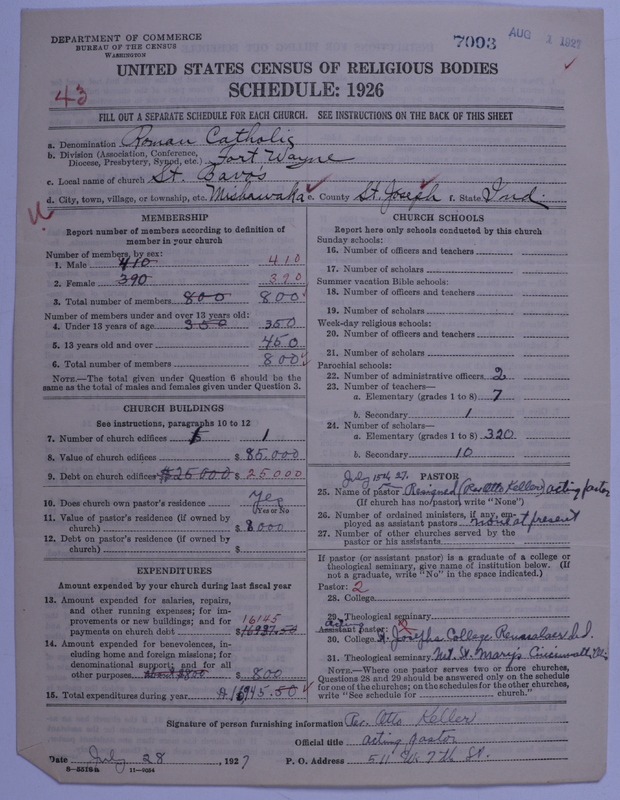 DEPARTMENT OF COMMERCE
BUREAU OF THE CENSUS
WASHINGTON
7093 AUG 1 1927
UNITED STATES CENSUS OF RELIGIOUS BODIES
SCHEDULE: 1926
43
FILL OUT A SEPARATE SCHEDULE FOR EACH CHURCH. SEE INSTRUCTIONS ON THE BACK OF THIS SHEET
a. Denomination Roman Catholic
b. Division (Association, Conference, Diocese, Presbytery, Synod, etc.) Fort Wayne
c. Local name of church St. Bavos
d. City, town, village, or township, etc. Mishawaka e. County St. Joseph f. State Ind.
MEMBERSHIP
Report number of members according to definition of
member in your church
Number of members, by sex:
1. Male 410 410
2. Female 390 390
3. Total number of members 800 800
Number of members under and over 13 years old:
4. Under 13 years of age 350 350
5. 13 years old and over 450
6. Total number of members 800
NOTE.—The total given under Question 6 should be the
same as the total of males and females given under Question 3.
CHURCH BUILDINGS
See instructions, paragraphs 10 to 12
7. Number of church edifices 1
8. Value of church edifices $ 85.000
9. Debt on church edifices $25000 $ 25000
10. Does church own pastor's residence Yes
(Yes or No)
11. Value of pastor's residence (if owned by
church) $ 8000
12. Debt on pastor's residence (if owned by
church) $
EXPENDITURES
Amount expended by your church during last fiscal year
13. Amount expended for salaries, repairs,
and other running expenses; for im-
provements or new buildings; and for 16145
payments on church debt $
14. Amount expended for benevolences, in-
cluding home and foreign missions; for
denominational support; and for all
other purposes $ 800
15. Total expenditures during year $ 16945.50
CHURCH SCHOOLS
Report here only schools conducted by this church
Sunday schools:
16. Number of officers and teachers
17. Number of scholars
Summer vacation Bible schools:
18. Number of officers and teachers
19. Number of scholars
Week-day religious schools:
20. Number of officers and teachers
21. Number of scholars
Parochial schools:
22. Number of administrative officers 2
23. Number of teachers—
a. Elementary (grades 1 to 8) 7
b. Secondary 1
24. Number of scholars—
a. Elementary (grades 1 to 8) 320
b. Secondary 10
July 15th, 27. PASTOR
25. Name of pastor Resigned (Rev Otto Keller) acting pastor
(If church has no pastor, write "None")
26. Number of ordained ministers, if any, em-
ployed as assistant pastors none at present
27. Number of other churches served by the
pastor or his assistants
If pastor (or assistant pastor) is a graduate of a college or
theological seminary, give name of institution below. (If
not a graduate, write "No" in the space indicated.)
Pastor: 2
28. College
29. Theological seminary
acting
Assistant pastor:
30. College St. Josephs College Rensselaer Ind.
31. Theological seminary Mt. St. Marys Cincinnati, Ohio
NOTE.—Where one pastor serves two or more churches,
Questions 28 and 29 should be answered only on the schedule
for one of the churches; on the schedules for the other churches,
write "See schedule for church."
Signature of person furnishing information Rev. Otto Keller
Official title acting pastor
Date July 28, 1927 P. O. Address 511 W. 7th St.
8-5319a 11-9034